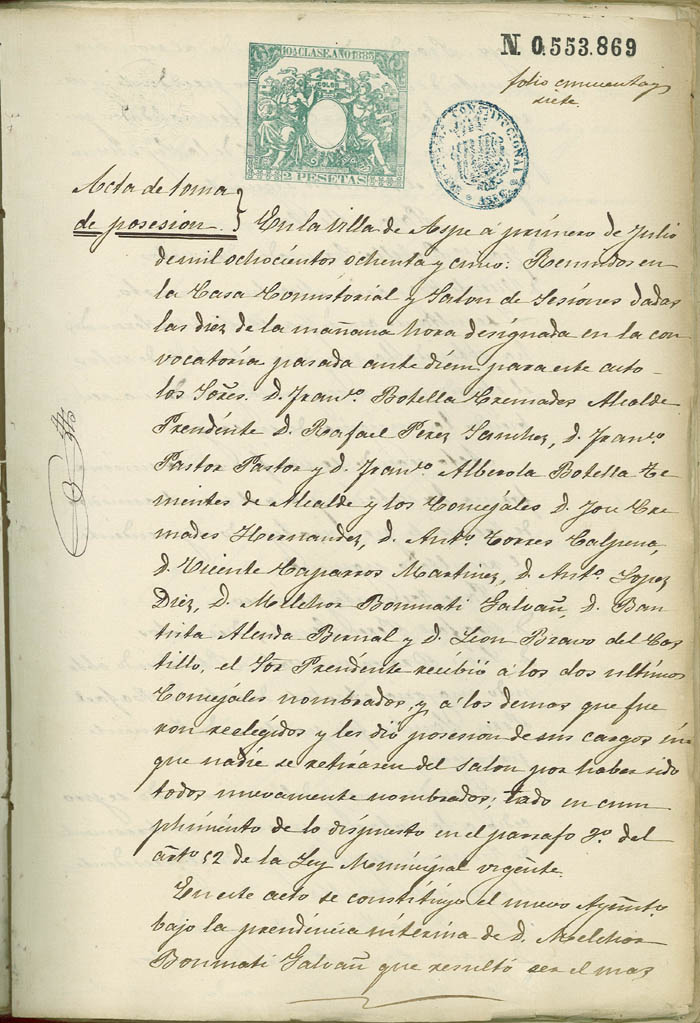 N. 0.553.869
10ª CLASE. AÑO 1885
2 PESETAS
folio cincuenta y
siete.
CONSTITUCIONAL
Acta de toma
de posesion.
En la villa de Aspe á primero de Julio
de mil ochocientos ochenta y cinco: Reunidos en
la Casa Consistorial y Salon de Sesiones dadas
las diez de la mañana hora designada en la con
vocatoria pasada ante diem para este acto
los Señes. D. Franco. Botella Cremades Alcalde
Presidente D. Rafael Perez Sanchez, D. Franco
Pastor Pastor y D. Franco. Alberola Botella Te
nientes de Alcalde y los Concejáles D. Jose Cre
mades Hernandez, D. Anto. Torres Calpena,
D. Vicente Caparros Martinez, D. Anto. Lopez
Diez, D. Melchor Bonmati Galvañ, D. Bau
tista Alenda Bernal y D. Leon Bravo del Cas
tillo, el Sor Presidente recibió á los dos ultimos
Concejáles nombrados, y á los demas que fue
ron reelegidos y les dió posesion de sus cargos sin
que nadie se retirásen del salon por haber sido
todos nuevamente nombrados; todo en cum
plimiento de lo dispuesto en el parrafo 2º. del
arto 52 de la Ley Municipal vigente.
En este acto se constituyo el nuevo Ayunto.
bajo la presidencia interina de D. Melchor
Bonmati Galvañ que resultó ser el mas